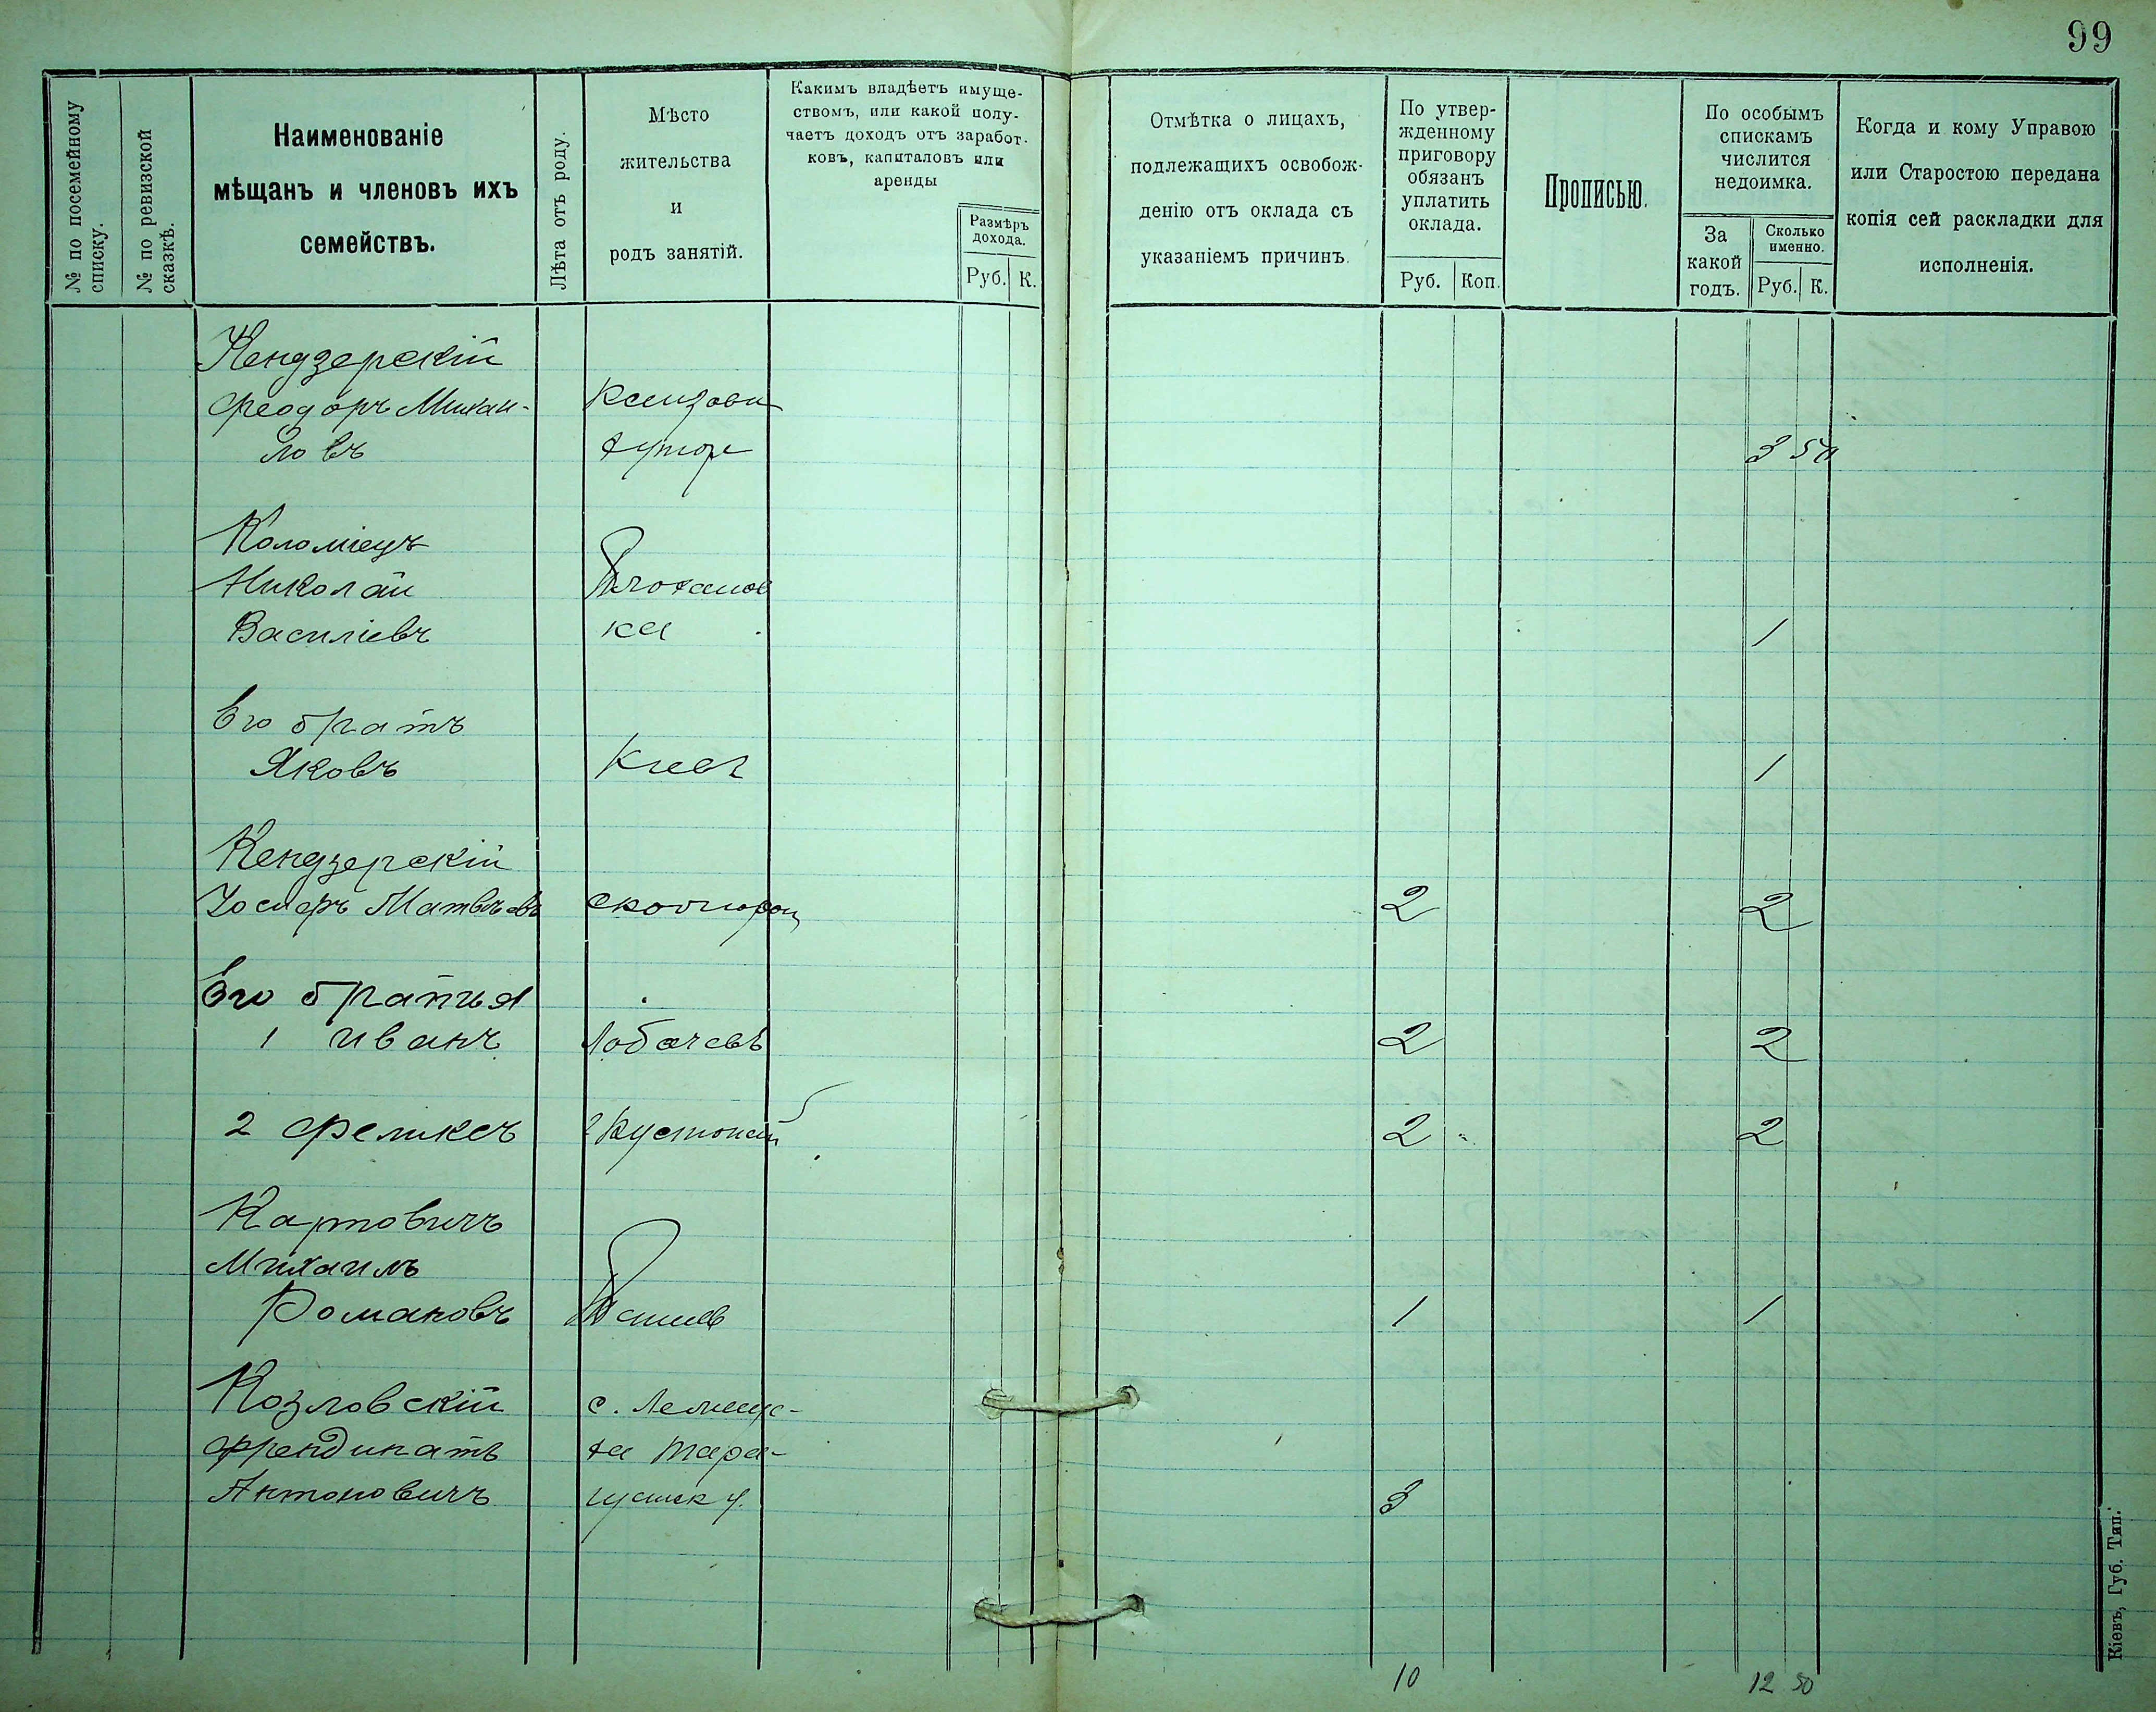 99
№ по посемейному списку.
№ по ревизской сказкѣ.
Наименованіе
мѣщанъ и членовъ ихъ
семействъ.
Лѣта отъ роду.
Мѣсто
жительства
и
родъ занятій.
Какимъ владѣетъ имуще-
ствомъ, или какой полу-
чаетъ доходъ отъ заработ-
ковъ, капиталовъ или
аренды
Размѣръ
дохода.
Руб. К.
Отмѣтка о лицахъ,
подлежащихъ освобож-
денію отъ оклада съ
указаніемъ причинъ.
По утвер-
жденному
приговору
обязанъ
уплатить
оклада.
Руб. Коп.
Прописью.
По особымъ
спискамъ
числится
недоимка.
За
какой
годъ.
Сколько
именно.
Руб. К.
Когда и кому Управою
или Старостою передана
копія сей раскладки для
исполненія.
Кендзерскій
Феодоръ Михаи-
ловъ 3 50
Коломіецъ
Николай
Василіевъ ка 1
Его братъ
Яковъ Кіевъ 1
Кендзерскій
Іосифъ Матвѣевъ 2 2
Его братья
1 Иванъ Лобачевъ 2 2
2 Феликсъ 2 2
Картовичъ
Михаилъ
Романовъ 1 1
Козловскій с.
Ферендинатъ Тара-
Антоновичъ у. 3
10 12 50
Кіевъ, Губ. Тип.